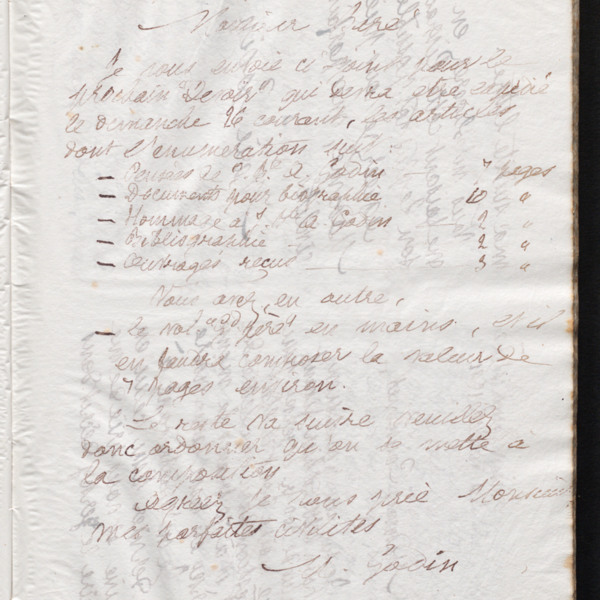 Monsieur Péré
Je vous envoie ci joint pour le
prochain "Devoir" qui devra être expédié
le dimanche 26 courant, les articles
dont l'énumération suit :
— Pensées de J. Bte A. Godin — 7 pages
— Documents pour biographie 10 "
— Hommage à J. Bte A. Godin — 2 "
— Bibliographie — 2 "
— Ouvrages reçus — 3 "
Vous avez, en outre,
— le en mains, et il
en faudra composer la valeur de
7 pages environ.
Le reste va suivre veuillez
donc ordonner qu'on se mette à
la composition
Agréez je vous prie Monsieur
mes parfaites civilités
M. Godin